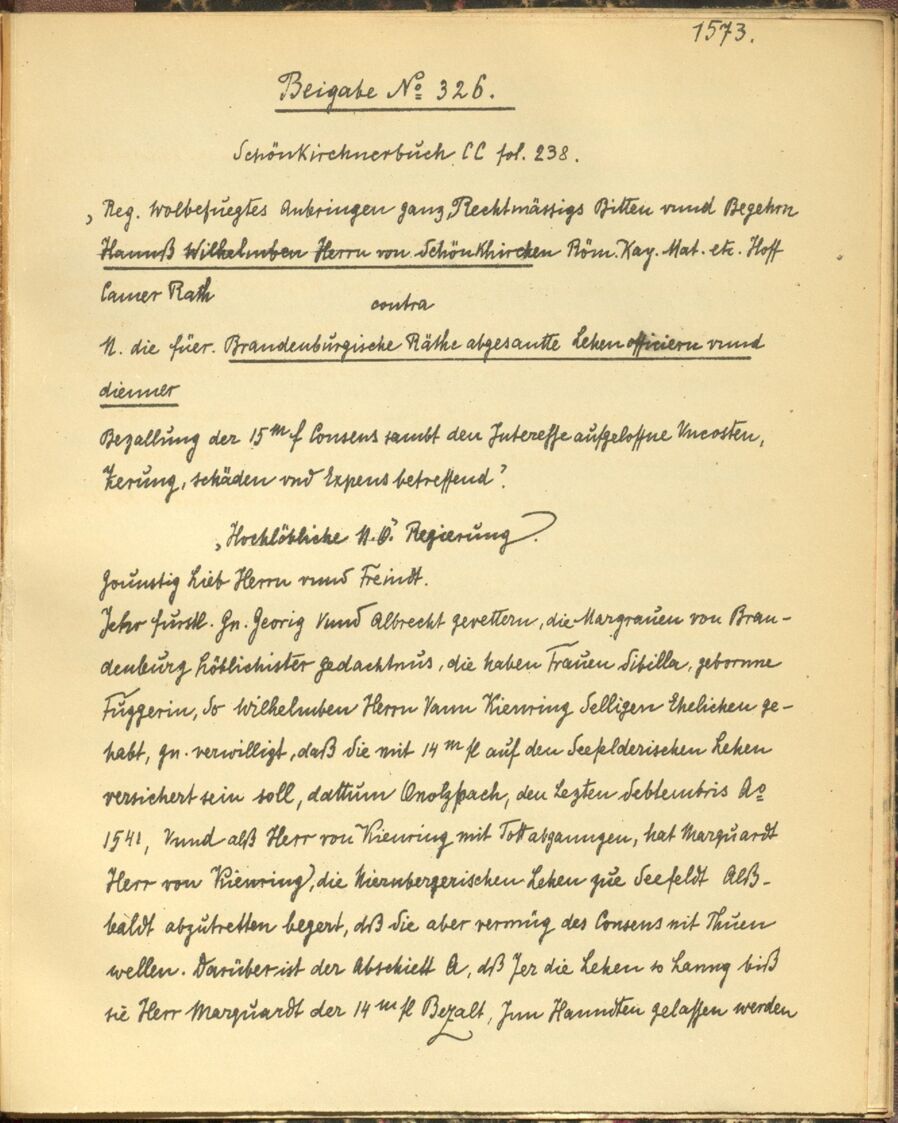 1573.
Beigabe No 326.
Schönkirchnerbuch CC fol. 238.
„Reg. wolbefuegtes Anbringen ganz Rechtmässigs Bitten vnnd Begehrn
Hannß Wilhelmben Herrn von Schönkhirchen Röm. Kay. Mat. etc. Hoff
Camer Rath
contra
N. die füer. Brandenburgische Räthe abgesantte Lehen officiern vnnd
dienner
Bezallung der 15m f Consens sambt den Interesse aufgeloffne Vncosten,
Zerung, schäden vnd Expens betreffend“.
„Hochlöbliche N.Ö. Regierung.
Gounstig Lieb Herrn vnnd Freindt.
Jehr furstl. Gn. Georig Vnnd Albrecht gevettern, die Margrauen von Bran-
denburg Löblichister gedachtnus, die haben Frauen Sibilla, geborne
Fuggerin, So Wilhelmben Herrn Vann Kienring Selligen Ehelichen ge-
habt, gn. verwilligt, daß Sie mit 14m fl auf den Seefelderischen Lehen
versichert sein soll, dattum Onolzpach, den Lezten Sebtembris Ao
1541, Vnnd alß Herr von Kienring mit Tott abganngen, hat Marquardt
Herr von Kienring, die Niernbergerischen Lehen zue Seefeldt Alß-
baldt abzutretten begert, dß Sie aber vermüg des Consens nit Thuen
wellen. Darüber ist der Abschiett A, dß Jer die Lehen so Lanng biß
sie Herr Marquardt der 14m fl Bezalt, Jnn Hanndten gelassen werden